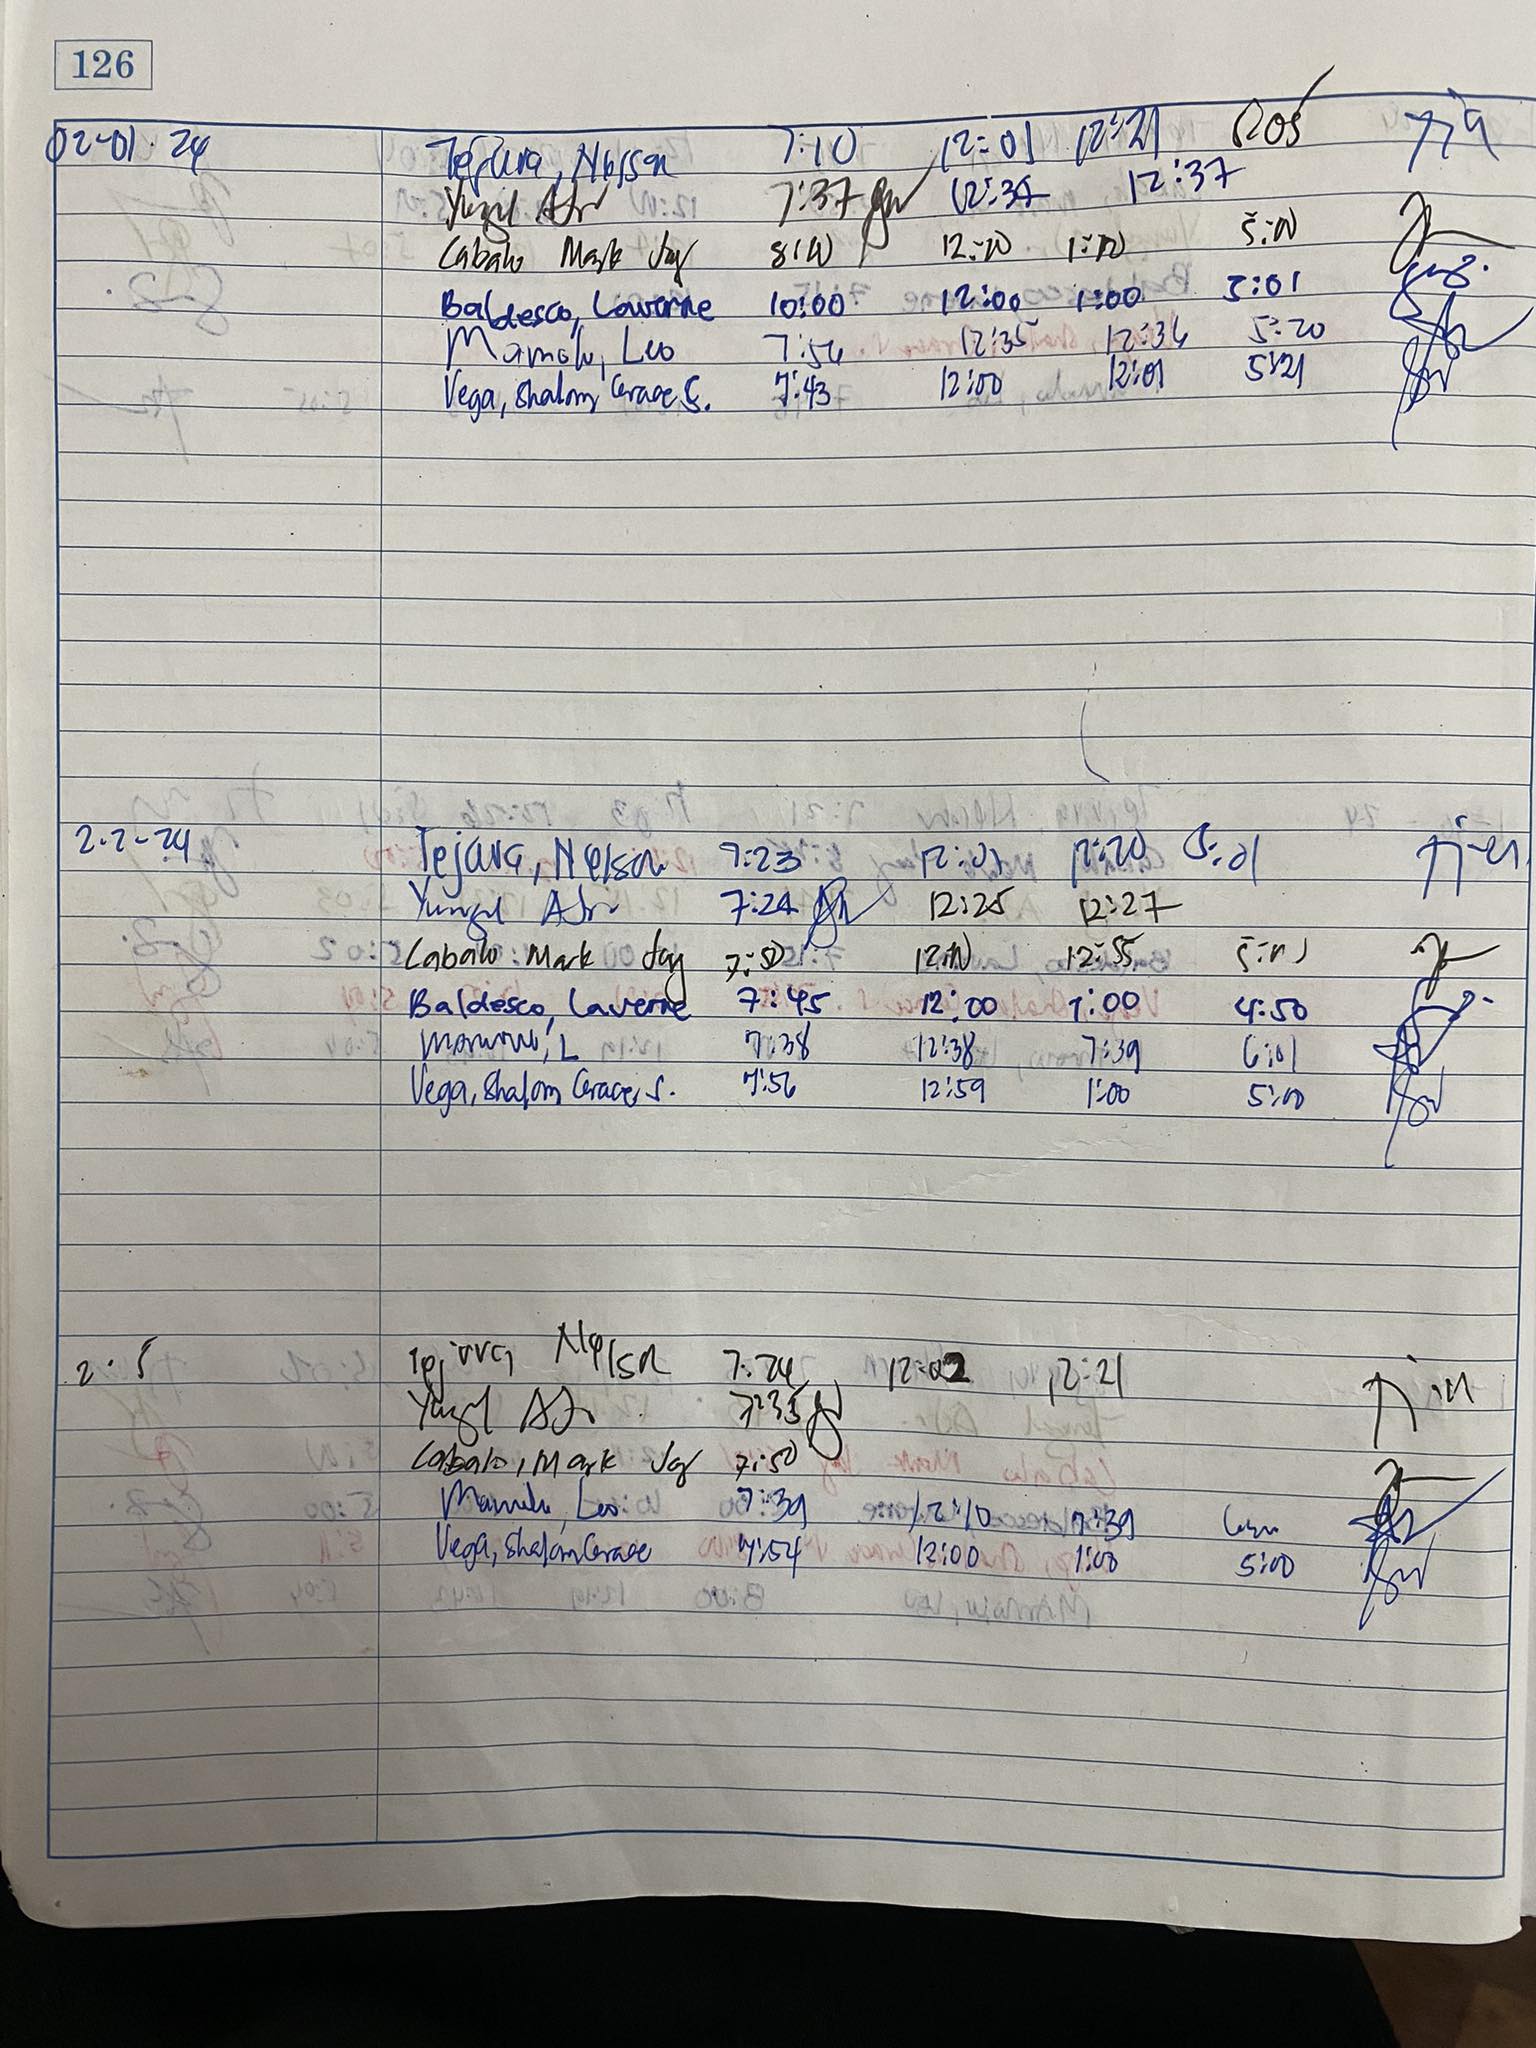 126
02-01-24 Tejara, Nelson 7:10 12:01 12:21
7:37 12:37 12:37
Cabalo Mark Jay 8:00 12:00 1:00 5:00
Baldesco, Laverne 10:00 12:00 1:00 5:01
Mamolo, Leo 7:56 12:35 12:36 5:20
Vega, Shalom Grace S. 7:43 12:00 12:01 5:21
2-2-24 Tejara, Nelson 7:23 12:01 12:20 5:01
7:24 12:25 12:27
Cabalo Mark Jay 7:50 12:00 12:55 5:00
Baldesco, Laverne 7:45 12:00 1:00 4:50
L 7:38 12:38 7:39 6:01
Vega, Shalom Grace, S. 7:56 12:59 1:00 5:00
2-5 Tejara, Nelson 7:24 12:02 12:21
7:35
Cabalo, Mark Jay 7:50
Leo 7:39 12:10 7:39
Vega, Shalom Grace 7:54 12:00 1:00 5:00